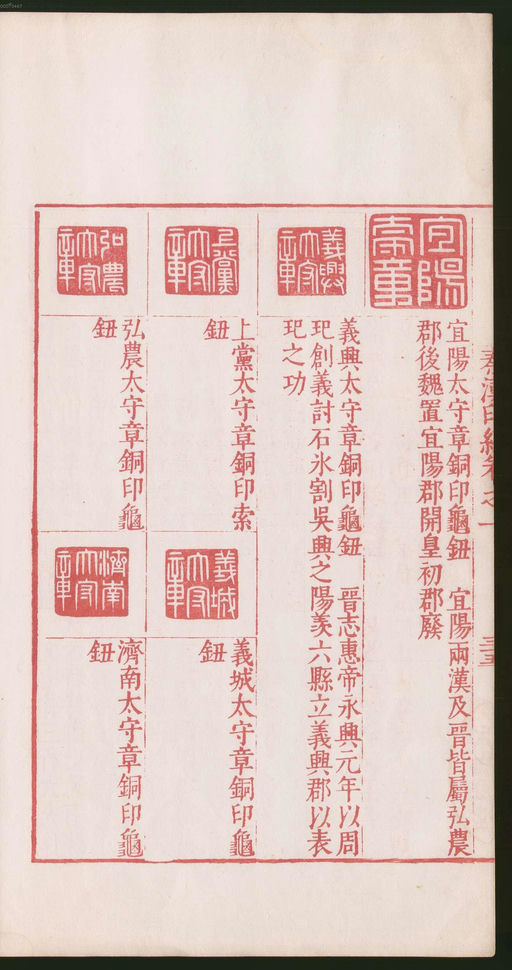 秦漢印統卷之一
三十五
宜陽太守章
宜陽太守章銅印龜鈕　宜陽兩漢及晋皆屬弘農
郡後魏置宜陽郡開皇初郡廢
義興太守章
義興太守章銅印龜鈕　晋志惠帝永興元年以周
玘創義討石氷割吳興之陽羡六縣立義興郡以表
玘之功
上黨太守章
上黨太守章銅印索
鈕
義城太守章
義城太守章銅印龜
鈕
弘農太守章
弘農太守章銅印龜
鈕
濟南太守章
濟南太守章銅印龜
鈕